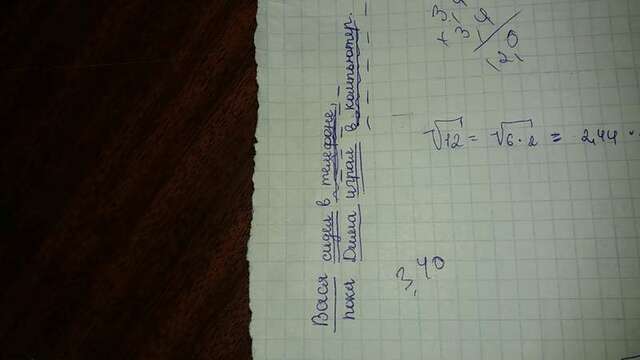 Вася сидел в телефоне,
пока Дима играл в компьютер.
√12 = √6·2 = 2,44